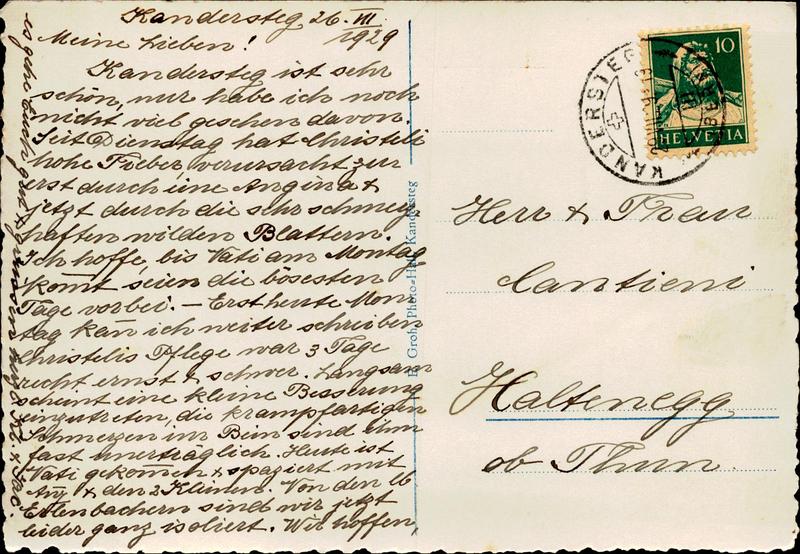 Kandersteg 26. VII.
1929
Meine Lieben!
Kandersteg ist sehr
schön, nur habe ich noch
nicht viel gesehen davon.
Seit Dienstag hat Christeli
hohe Fieber, verursacht zu-
erst durch eine Angina &
jetzt durch die sehr schmerz-
haften wilden Blattern.
Ich hoffe, bis Vati am Montag
kom̄t seien die bösesten
Tage vorbei. – Erst heute Mon-
tag kan̄ ich weiter schreiben
Christelis Pflege war 3 Tage
recht ernst & schwer. Langsam
scheint eine kleine Besserung
einzutreten, die krampfartigen
Schmerzen im Bein sind zum
fast unerträglich. Heute ist
Vati gekom̄en & spaziert mit
& den 2 Kleinen. Von den 16
Erlenbachern sind wir jetzt
leider ganz isoliert. Wir hoffen,
es gehe Euch gut &
R. Groh, Photo-Hall, Kandersteg
10
HELVETIA
KANDERSTEG
Herr & Frau
Cantieni
Haltenegg
ob Thun.